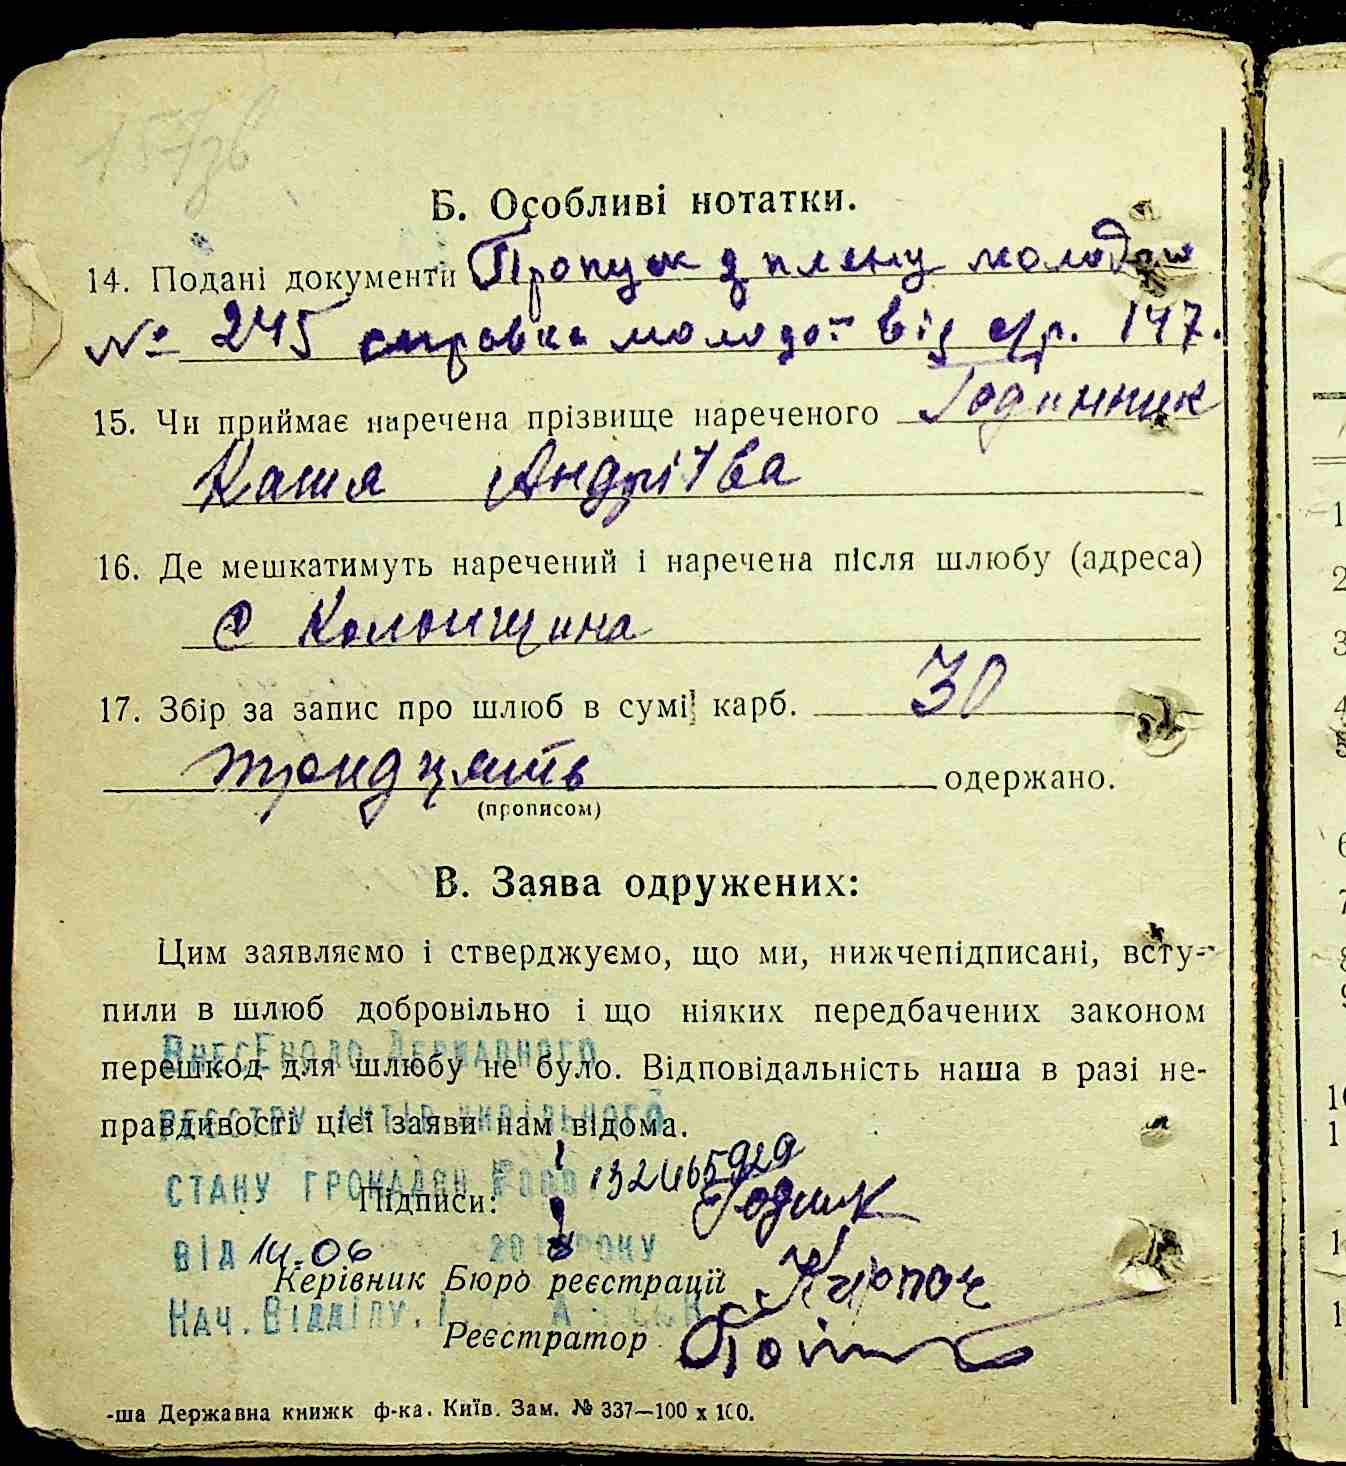 157зв
Б. Особливі нотатки.
14. Подані документи Пропуск з плену молодой
№ 245 справка молодої від с/р. 147.
15. Чи приймає наречена прізвище нареченого Годинник
Катя Андріївa
16. Де мешкатимуть наречений і наречена після шлюбу (адреса)
с Колонщина
17. Збір за запис про шлюб в сумі карб. 30
тридцять одержано.
(прописом)
В. Заява одружених:
Цим заявляємо і стверджуємо, що ми, нижчепідписані, всту-
пили в шлюб добровільно і що ніяких передбачених законом
Внесено до Державного
перешкод для шлюбу не було. Відповідальність наша в разі не-
реєстру актів цивільного
правдивості цієї заяви нам відома.
стану громадян
Підписи:
від 14.06 року
Керівник Бюро реєстрації
Нач. Відділу
Реєстратор
-ша Державна книжк ф-ка. Київ. Зам. № 337—100 х 100.